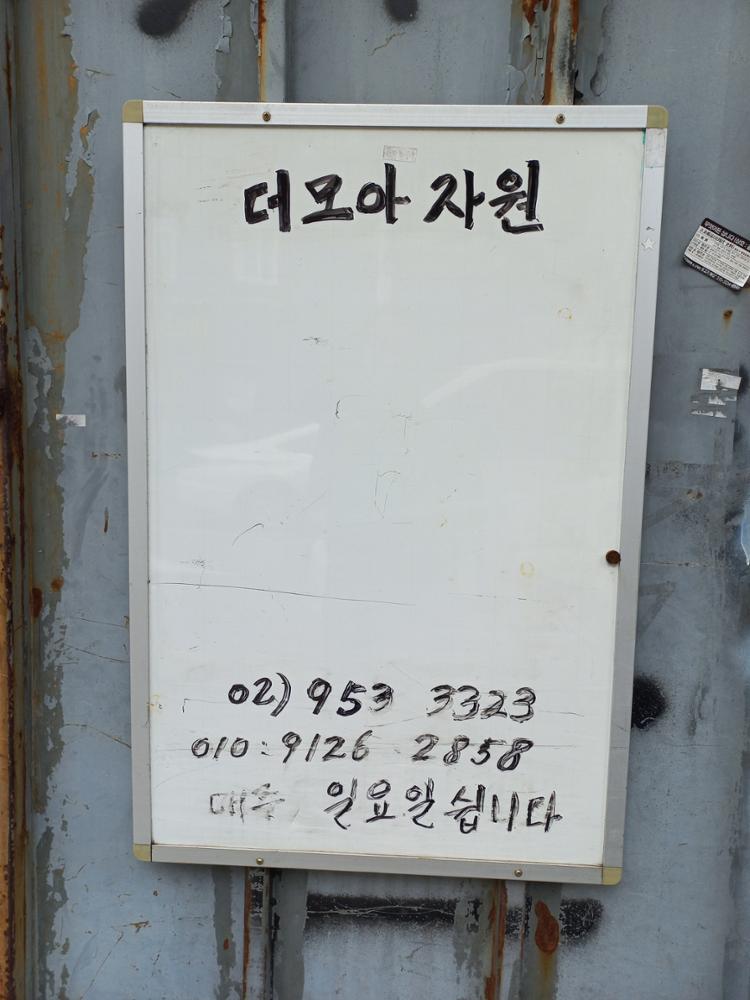 더모아 자원
02) 953 3323
010 : 9126 2858
매주 일요일 쉽니다